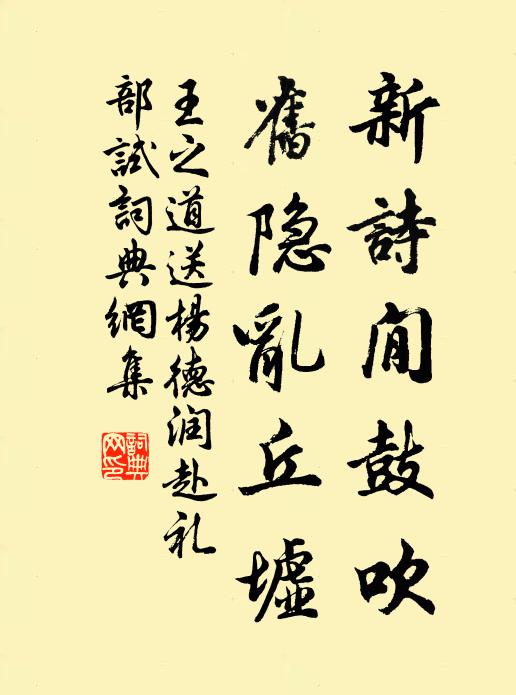 新詩閒鼓吹
舊隐亂丘墟
王之道送楊德润赴礼
部試詞典網集
詞典网印